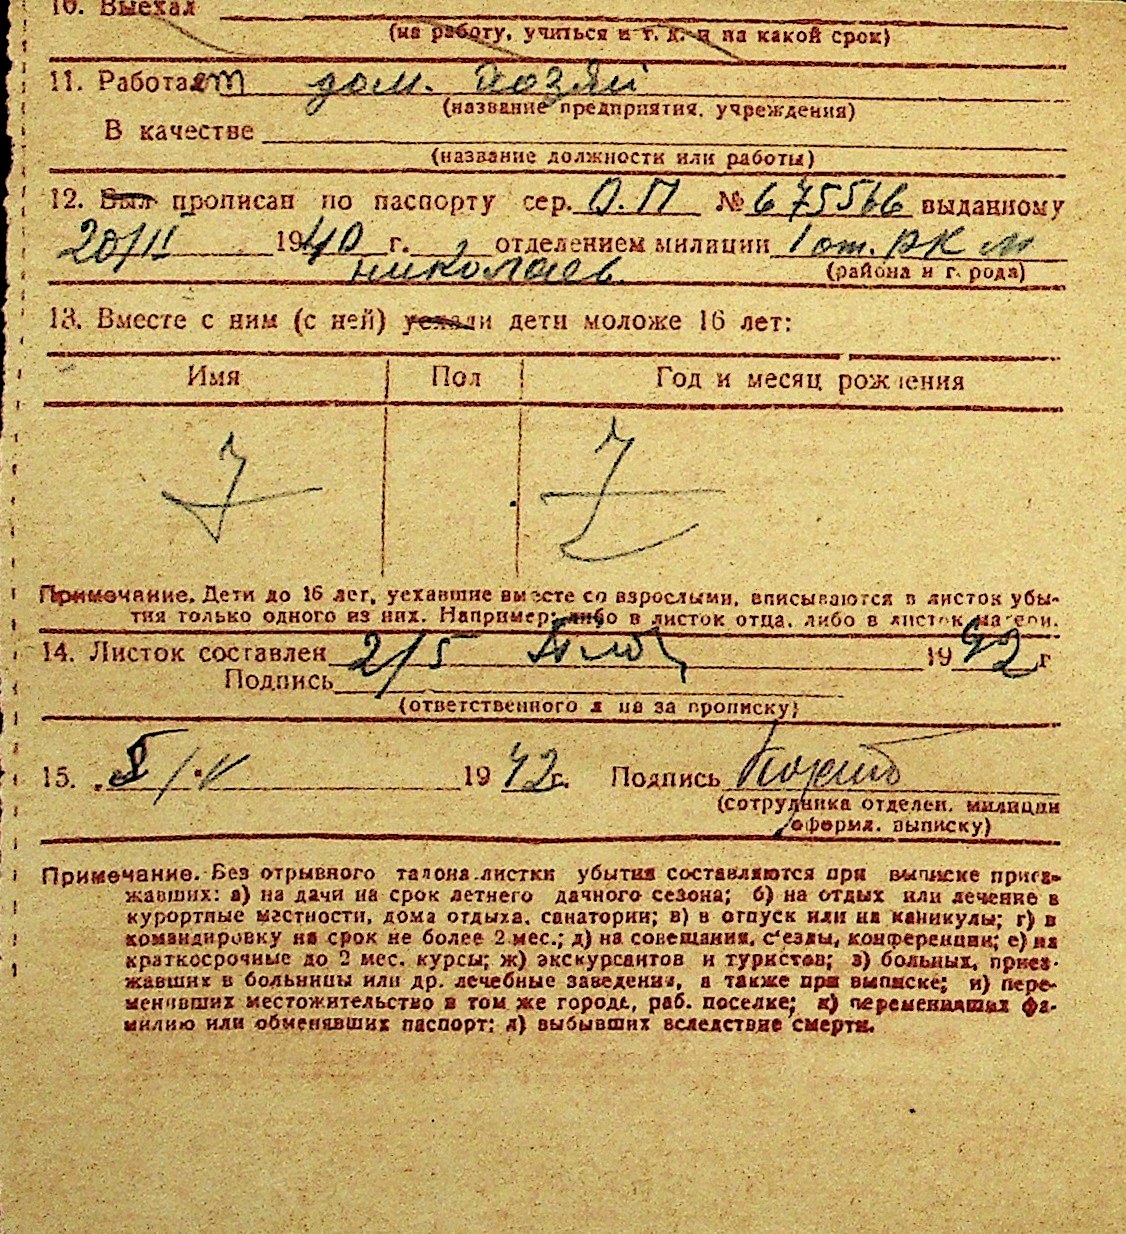 10. Выехал
(на работу, учиться и т. д. и на какой срок)
11. Работает дом. хозяй
(название предприятия, учреждения)
В качестве
(название должности или работы)
12. Был прописан по паспорту сер. О.П №675566 выданному
20/II 1940 г. отделением милиции 1 от. РК м
николаев (района и г. рода)
13. Вместе с ним (с ней) уехали дети моложе 16 лет:
Имя Пол Год и месяц рождения
Примечание. Дети до 16 лет, уехавшие вместе со взрослыми, вписываются в листок убы-
тия только одного из них. Например: либо в листок отца, либо в листок матери.
14. Листок составлен 2/5 1942 г
Подпись
(ответственного л на за прописку)
15. 1942 г. Подпись
(сотрудника отделен. милиции
оформл. выписку)
Примечание. Без отрывного талона листки убытия составляются при выписке приез-
жавших: а) на дачи на срок летнего дачного сезона; б) на отдых или лечение в
курортные местности, дома отдыха, санатории; в) в отпуск или на каникулы; г) в
командировку на срок не более 2 мес.; д) на совещания, с'езды, конференции; е) на
краткосрочные до 2 мес. курсы; ж) экскурсантов и туристов; з) больных, приез-
жавших в больницы или др. лечебные заведения, а также при выписке; и) пере-
менивших местожительство в том же городе, раб. поселке; к) переменивших фа-
милию или обменявших паспорт; л) выбывших вследствие смерти.